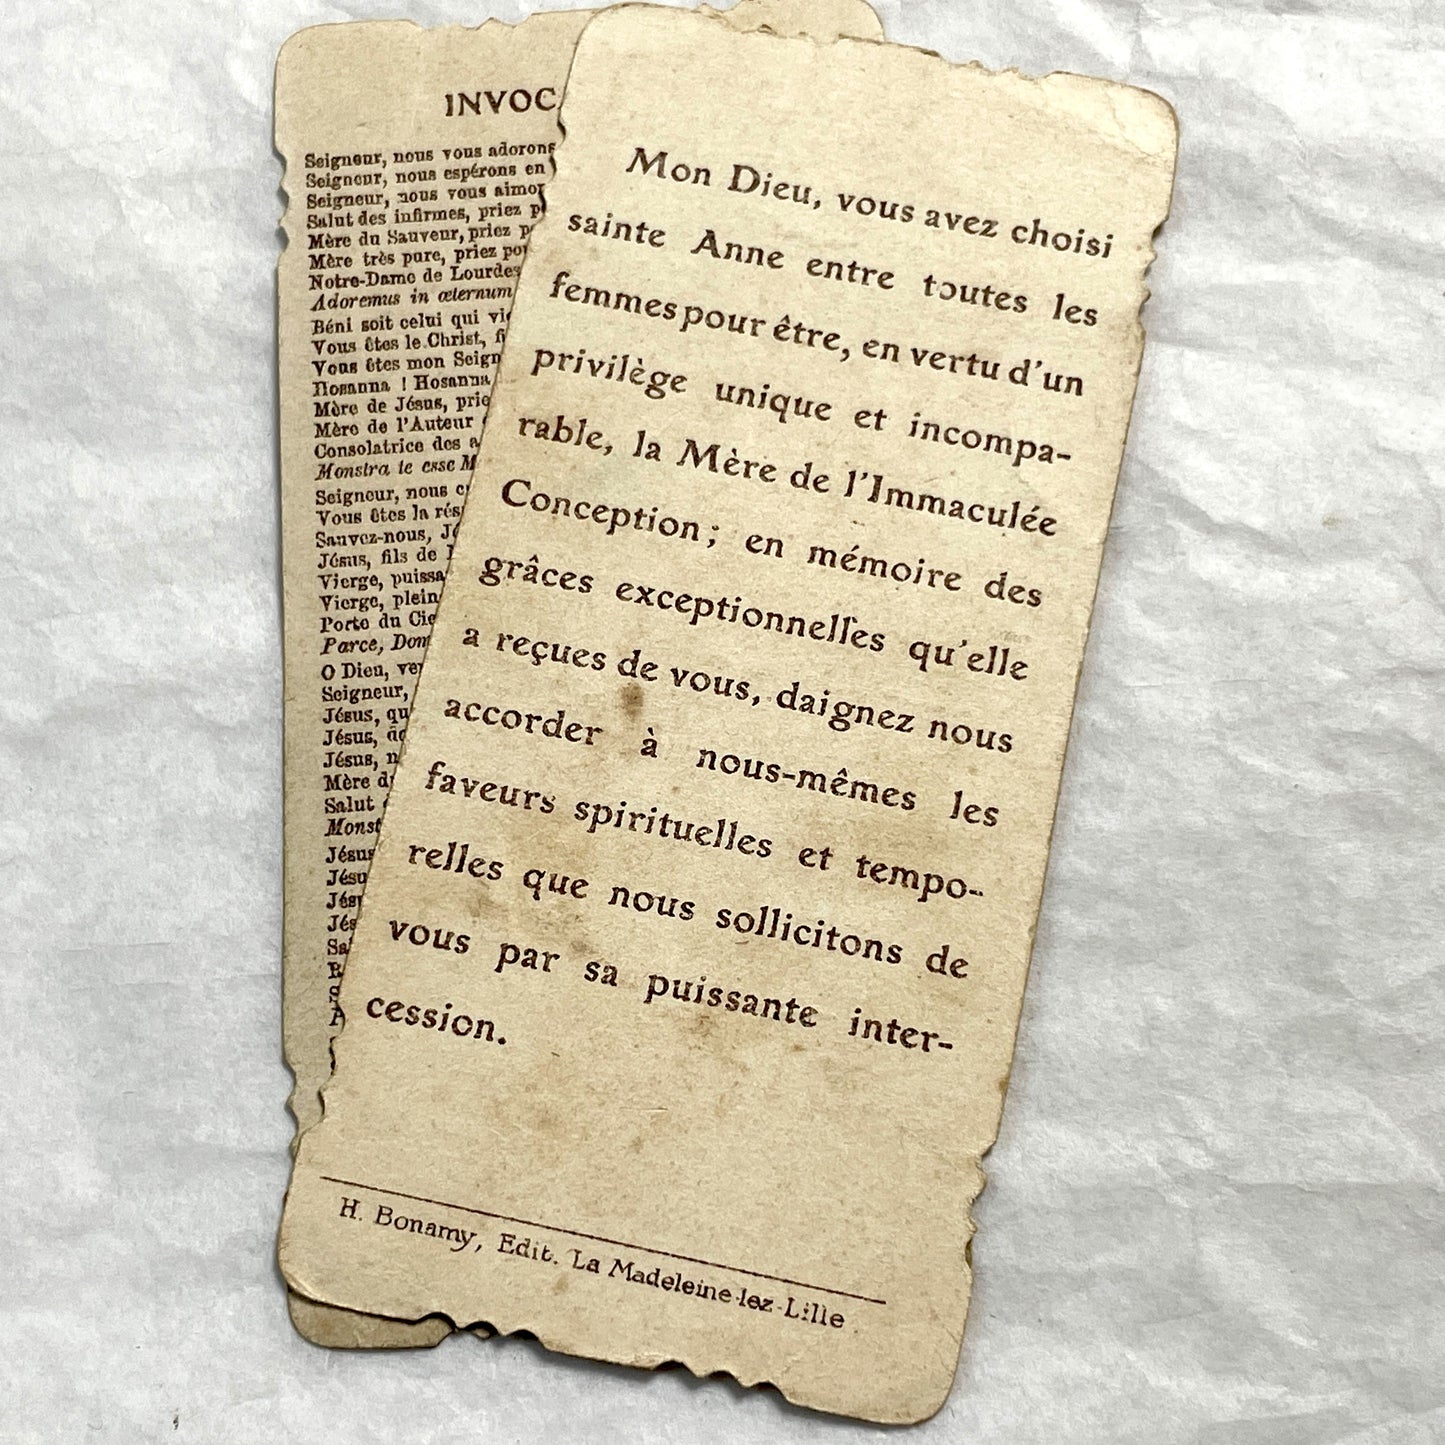 INVOC
Seigneur, nous vous adorons
Seigneur, nous espérons en
Seigneur, nous vous aimo
Salut des infirmes, priez p
Mère du Sauveur, priez p
Mère très pure, priez po
Notre-Dame de Lourdes
Adoremus in œternum
Béni soit celui qui vi
Vous êtes le Christ, fi
Vous êtes mon Seign
Hosanna ! Hosanna
Mère de Jésus, prie
Mère de l'Auteur
Consolatrice des a
Monstra te esse M
Seigneur, nous c
Vous êtes la rés
Sauvez-nous, Jé
Jésus, fils de
Vierge, puissa
Vierge, plein
Porte du Cie
Parce, Dom
O Dieu, ve
Seigneur,
Jésus, qu
Jésus,
Jésus, n
Mère d
Salut
Monst
Jésus
Jésu
Jésu
Jés
Sa
Mon Dieu, vous avez choisi
sainte Anne entre toutes les
femmes pour être, en vertu d'un
privilège unique et incompa-
rable, la Mère de l'Immaculée
Conception ; en mémoire des
grâces exceptionnelles qu'elle
a reçues de vous, daignez nous
accorder à nous-mêmes les
faveurs spirituelles et tempo-
relles que nous sollicitons de
vous par sa puissante inter-
cession.
H. Bonamy, Edit. La Madeleine-lez-Lille